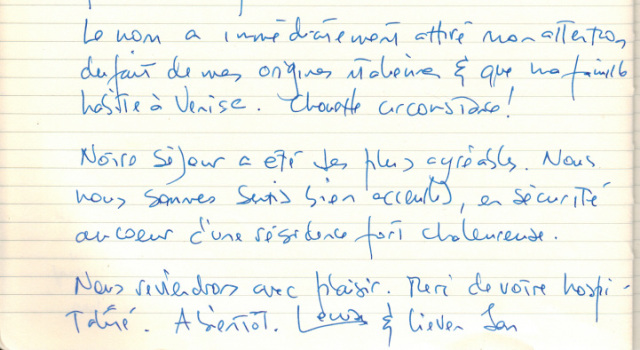 Le nom a immédiatement attiré mon attention
du fait de mes origines italiennes & que ma famille
habite à Venise. Chouette circonstance!
Notre séjour a été des plus agréables. Nous
nous sommes sentis bien accueillis, en sécurité
au coeur d'une résidence fort chaleureuse.
Nous reviendrons avec plaisir. Merci de votre hospi-
talité. A bientôt. & Lieven